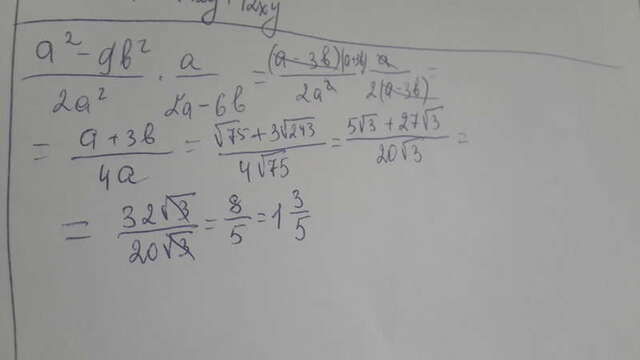 (a² - 9b²)/(2a²) · a/(2a - 6b) = ((a - 3b)(a+3b) a)/(2a² 2(a-3b)) =
= (a + 3b)/(4a) = (√75 + 3√243)/(4√75) = (5√3 + 27√3)/(20√3) =
= (32√3)/(20√3) = 8/5 = 1 3/5